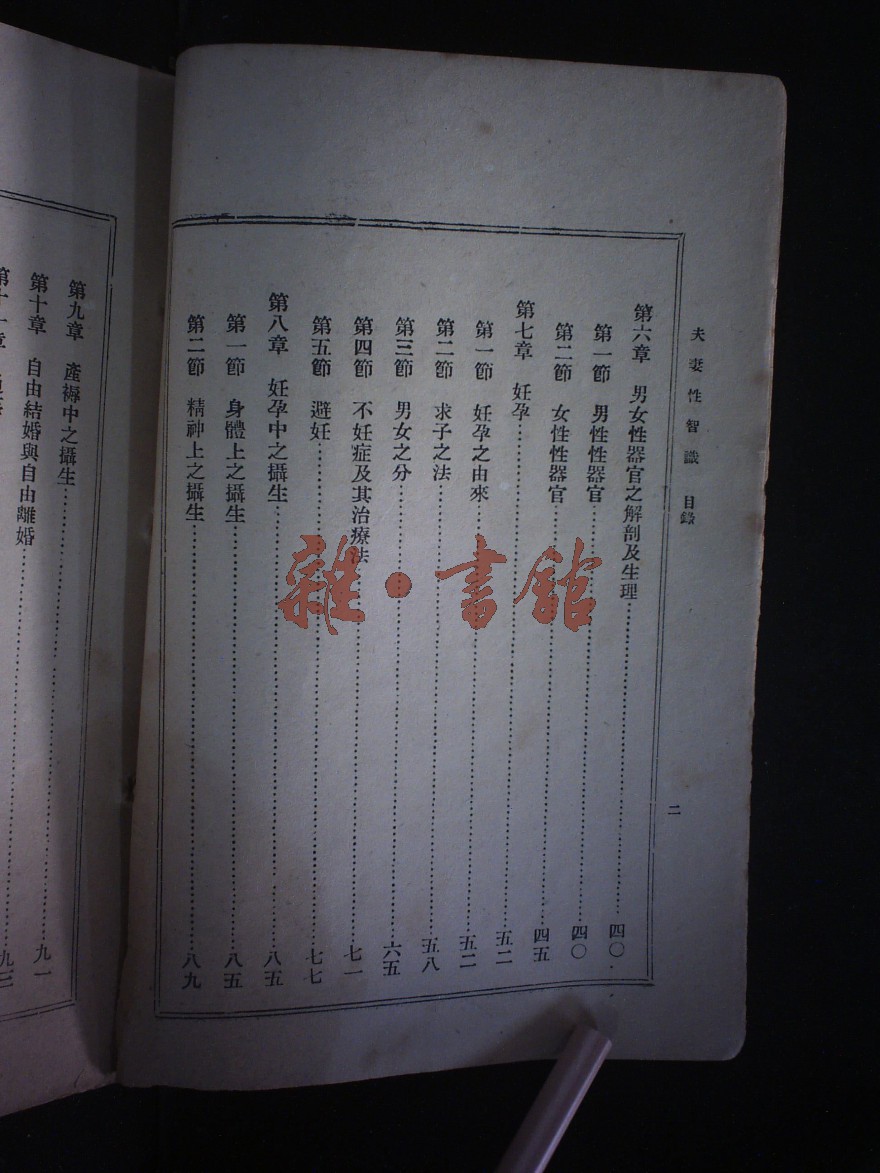 夫妻性智識　目錄
二
第六章　男女性器官之解剖及生理………四〇
第一節　男性性器官………四〇
第二節　女性性器官………四五
第七章　妊孕………五二
第一節　妊孕之由來………五二
第二節　求子之法………五八
第三節　男女之分………六五
第四節　不妊症及其治療法………七一
第五節　避妊………七七
第八章　妊孕中之攝生………八五
第一節　身體上之攝生………八五
第二節　精神上之攝生………八九
第九章　產褥中之攝生………九一
第十章　自由結婚與自由離婚………九三
雜·書館